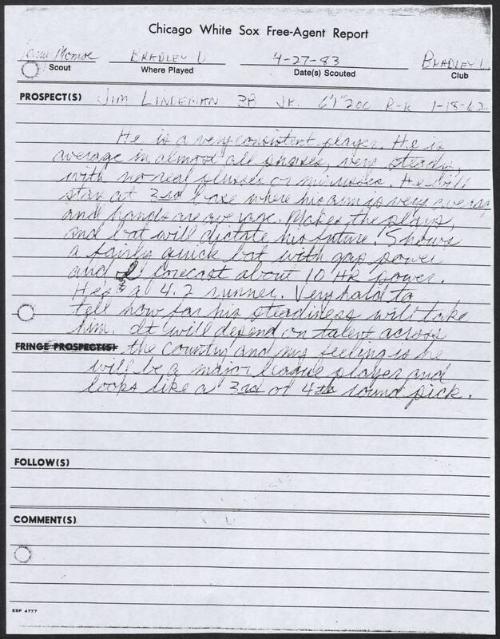 Chicago White Sox Free-Agent Report
Monroe BRADLEY U 4-27-83 BRADLEY U.
Scout Where Played Date(s) Scouted Club
PROSPECT(S) JIM LINDEMAN 3B JR. 6'1" 200 R-R 1-10-62
He is a very consistent player. He is
average in almost all phases, very steady
with no real plusses or minuses. He will
stay at 3rd base where his arm is very average
and hands are average. Makes the plays,
and bat will dictate his future. Shows
a fairly quick bat with gap power
and I forecast about 10 HR power.
He's a 4.2 runner. Very hard to
tell how far his steadiness will take
him. It will depend on talent across
FRINGE PROSPECT(S) the country and my feeling is he
will be a major league player and
looks like a 3rd or 4th round pick.
FOLLOW(S)
COMMENT(S)